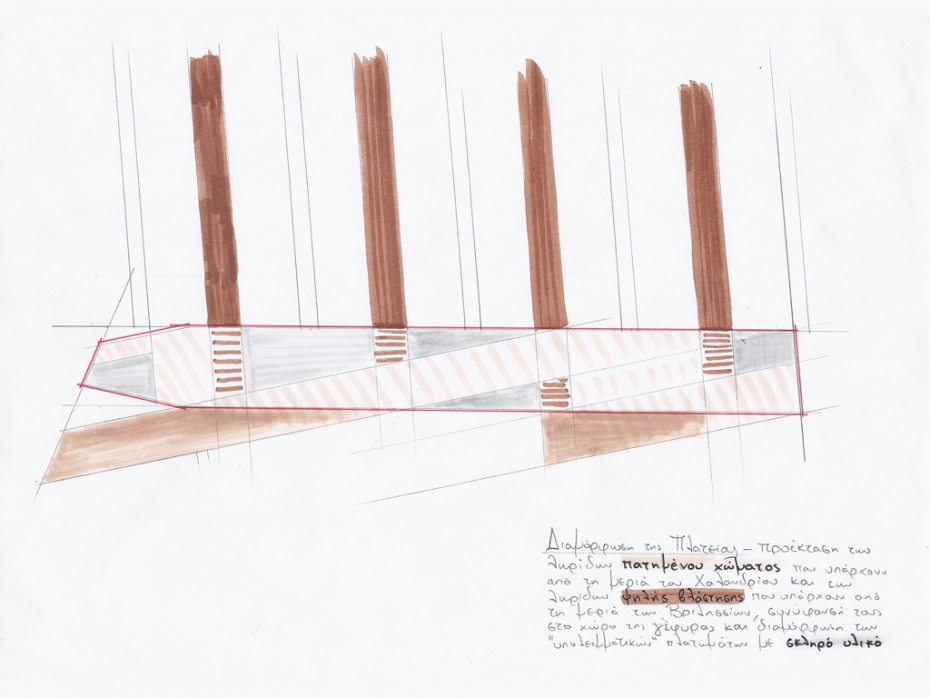 Διαμόρφωση της Πλατείας – προέκταση των
λωρίδων πατημένου χώματος που υπάρχουν
από τη μεριά του Χαλανδρίου και των
λωρίδων ψηλής βλάστησης που υπάρχουν από
τη μεριά των Βριλησσίων, συνύφανσή τους
στο χώρο της γέφυρας και διαμόρφωση των
"υπολειμματικών" πλατωμάτων με σκληρό υλικό